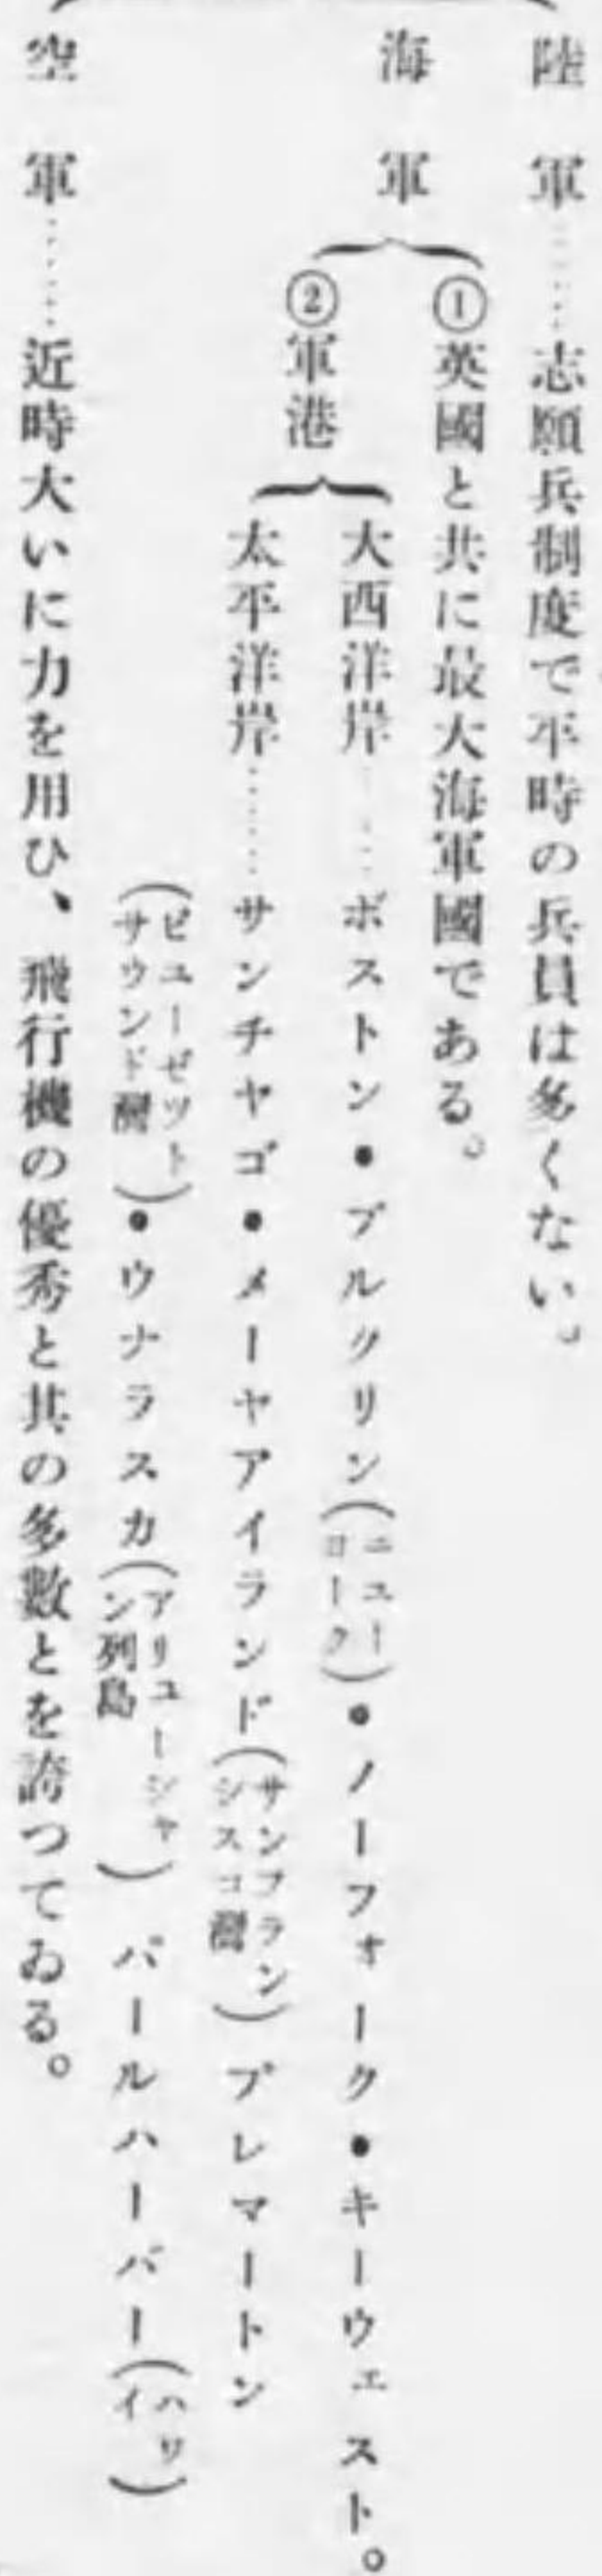 陸軍……志願兵制度で平時の兵員は多くない。
海軍
①英國と共に最大海軍國である。
②軍港
大西洋岸……ボストン・ブルクリン(ニューヨーク)・ノーフォーク・キーウェスト。
太平洋岸……サンチヤゴ・メーヤアイランド(サンフランシスコ灣)ブレマートン
(ピユーゼツトサウンド灣)・ウナラスカ(アリユーシヤン列島)パールハーバー(ハワイ)
空軍……近時大いに力を用ひ、飛行機の優秀と其の多數とを誇つてゐる。